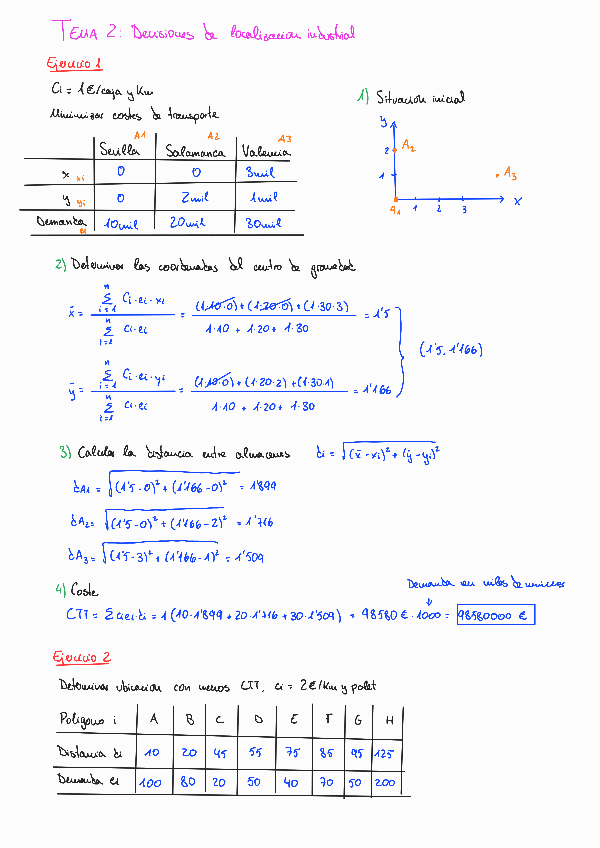 TEMA 2: Decisiones de localizacion industrial
Ejercicio 1
Ci = 1€/caja y Km
Minimizar costes de transporte
A1 A2 A3
Sevilla Salamanca Valencia
x xi 0 0 3mil
y yi 0 2mil 1mil
Demanda ei 10mil 20mil 30mil
1) Situación inicial
y
2 A2
1 A3
A1 1 2 3 x
2) Determinar las coordenadas del centro de gravedad
x̄ = (Σ(i=1..n) Ci·ei·xi) / (Σ(i=1..n) Ci·ei) = ((1·10·0)+(1·20·0)+(1·30·3)) / (1·10 + 1·20 + 1·30) = 1'5
(1'5, 1'166)
ȳ = (Σ(i=1..n) Ci·ei·yi) / (Σ(i=1..n) Ci·ei) = ((1·10·0)+(1·20·2)+(1·30·1)) / (1·10 + 1·20 + 1·30) = 1'166
3) Calcular la distancia entre almacenes di = √((x̄-xi)² + (ȳ-yi)²)
dA1 = √((1'5-0)² + (1'166-0)²) = 1'899
dA2 = √((1'5-0)² + (1'166-2)²) = 1'716
dA3 = √((1'5-3)² + (1'166-1)²) = 1'509
4) Coste
Demanda en miles de
CTT = Σ ci·ei·di = 1 (10·1'899 + 20·1'716 + 30·1'509) = 98580 € · 1000 = 98580000 €
Ejercicio 2
Determinar ubicacion con menos CTT, ci = 2€/Km y palet
Poligono i A B C D E F G H
Distancia di 10 20 45 55 75 85 95 125
Demanda ei 100 80 20 50 40 70 50 200